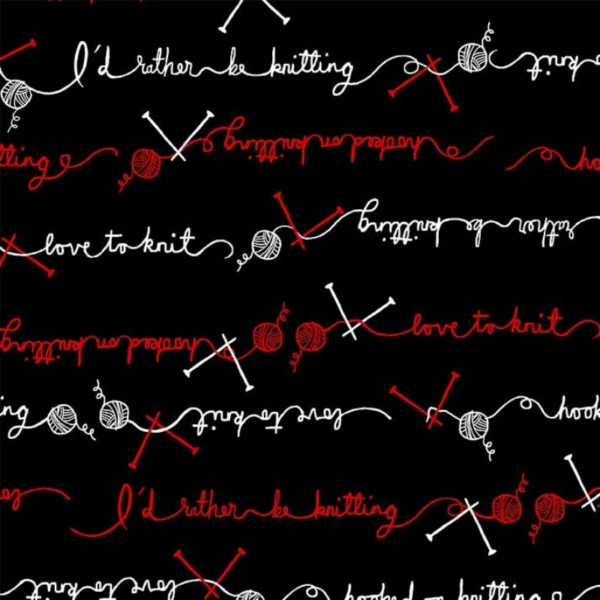 I'd rather be knitting knit
tting hooked on knitting ho
love to knit rather be knitting
hooked on knitting love to knit
ng love to knit hook
I'd rather be knitting
love to knit hooked on knitting